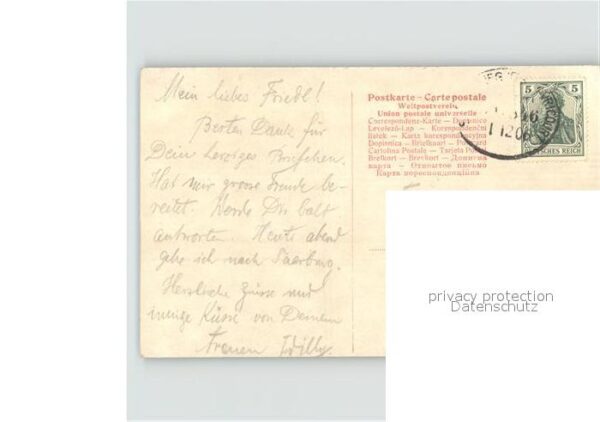 Mein liebes Friedl!
Besten Dank für
Dein herziges Briefchen.
Hat mir grosse Freude be-
reitet. Werde Dir balt
antworten. Heute abend
gehe ich nach Saarburg.
Herzliche Grüsse und
innige Küsse von Deinem
Treuen Willy.
Postkarte – Carte postale
Weltpostverein
Union postale universelle
Correspondenz-Karte – Dopisnice
Levelező-Lap – Korespondenční
lístek – Karta korespondencyjna
Dopisnica – Briefkaart – Postcard
Cartolina Postale – Tarjeta Postal
Brefkort – Brevkort – Дописна
карта – Открытое письмо
Карта кореспонденційна
5 5
DEUTSCHES REICH
12 06
privacy protection
Datenschutz